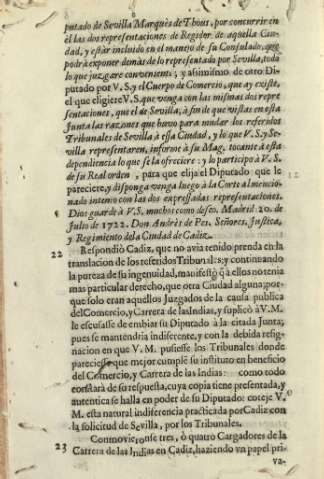 putado de Sevilla Marquès de Thous, por concurrir en
èl las dos representaciones de Regidor de aquella Ciu-
dad, y estàr incluido en el manejo de su Consulado, que
podrà exponer demàs de lo representado por Sevilla, todo
lo que juzgare conveniente; y asimismo de otro Di-
putado por V.S. y el Cuerpo de Comercio, que ay existe,
el que eligiere V.S. que venga con las mismas dos repre
sentaciones, que el de Sevilla; à fin de que vistas en esta
Junta las razones que huvo para mudar los referidos
Tribunales de Sevilla à essa Ciudad, y lo que V.S. y Se-
villa representaren, informe à su Mag. tocante à esta
dependiencia lo que se la ofreciere: y lo participo à V.S.
de su Real orden, para que elija el Diputado que le
pareciere, y disponga venga luego à la Corte al mencio-
nado intento con las dos expressadas representaciones.
Dios guarde à V.S. muchos como deseo. Madrid 20. de
Julio de 1722. Don Andrès de Pes. Señores, Justicia,
y Regimiento de la Ciudad de Cadiz.
22 Respondiò Cadiz, que no avia tenido prenda en la
translacion de los referidos Tribunales: y continuando
la pureza de su ingenuidad, manifestò q̃ à ellos no tenia
mas particular derecho, que otra Ciudad alguna; por-
que solo eran aquellos Juzgados de la causa publica
del Comercio, y Carrera de las Indias, y suplicò à V.M.
le escusasse de embiar su Diputado à la citada Junta;
pues se mantendria indiferente, y con la debida resig-
nacion en que V. M. pusiesse los Tribunales donde
pareciesse que mejor cumpliè su instituto en beneficio
del Comercio, y Carrera de las Indias: como todo
constarà de su respuesta, cuya copia tiene presentada, y
autentica se halla en poder de su Diputado: coteje V.
M. esta natural indiferencia practicada por Cadiz con
la solicitud de Sevilla, por los Tribunales.
23 Conmovieronse tres, ò quatro Cargadores de la
Carrera de las Indias en Cadiz, haziendo vn papel pri-
va-